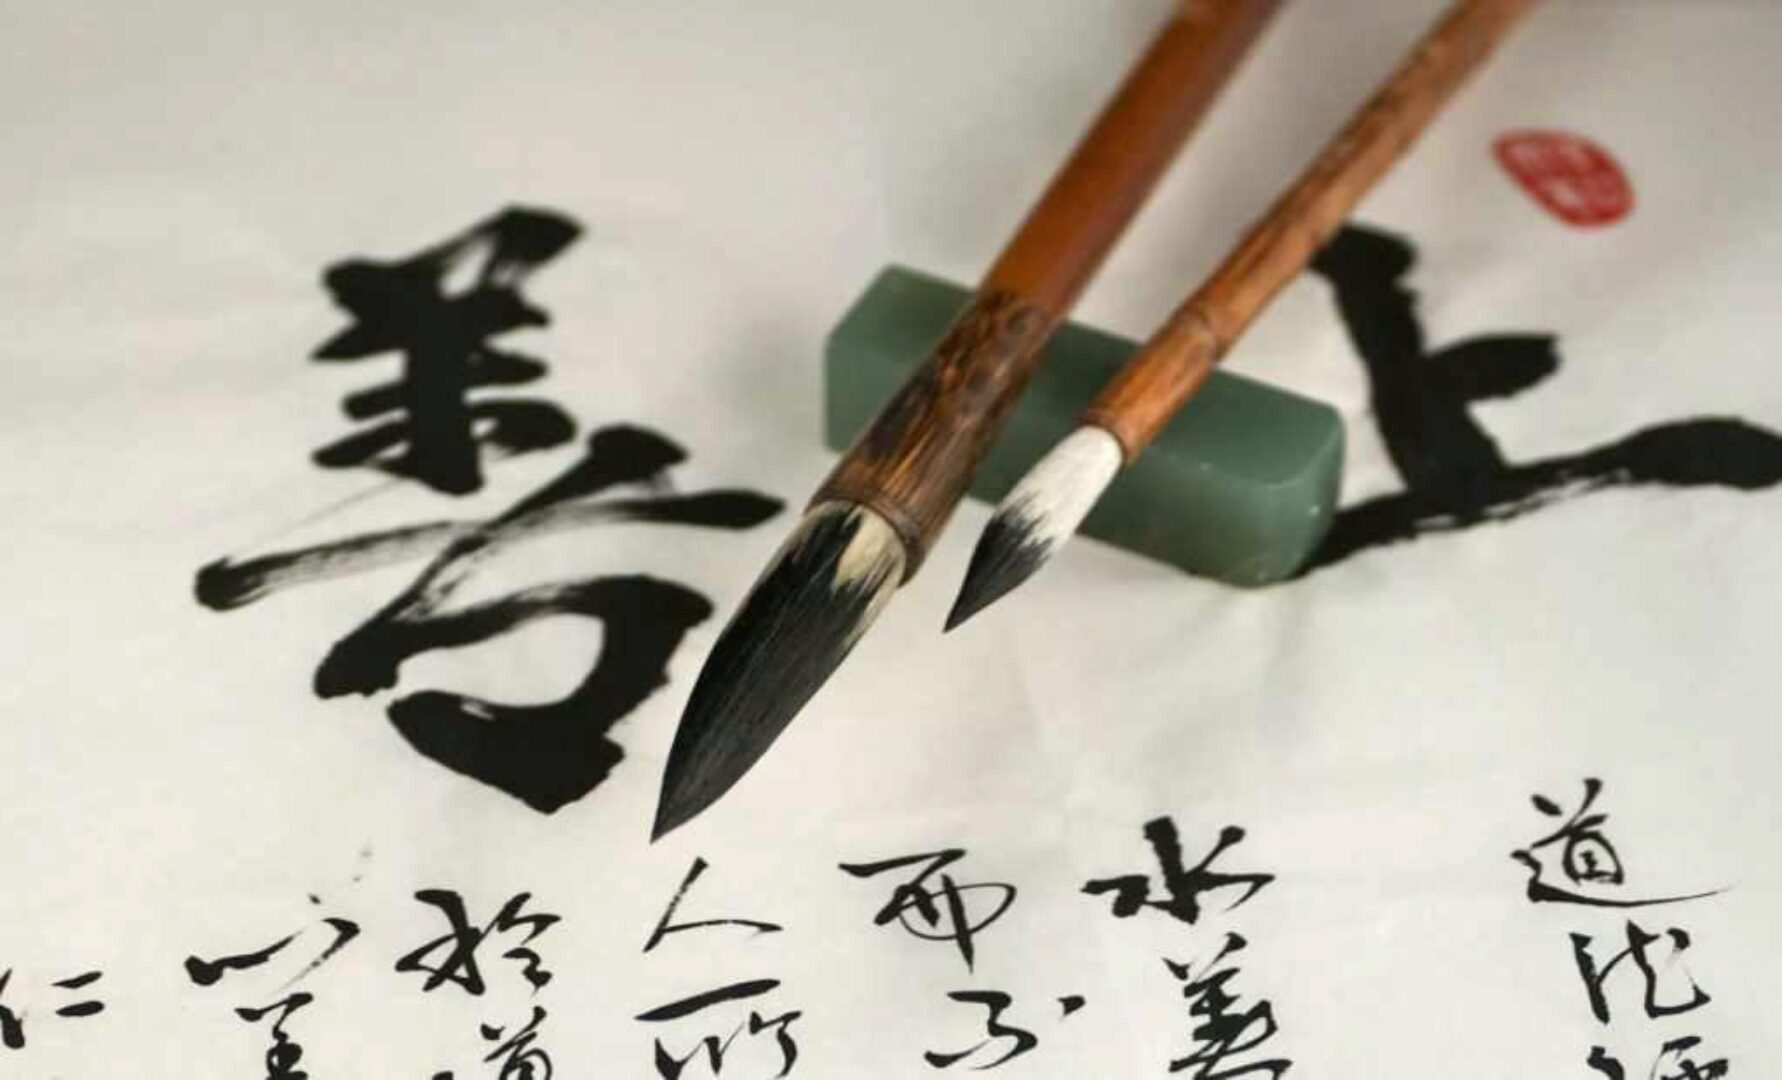 上善
道德經
水善
而不
人所
於道
心善
仁